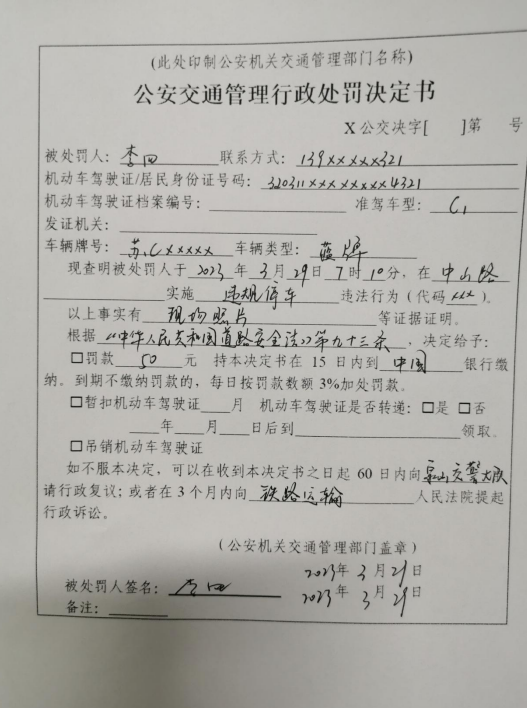 (此处印制公安机关交通管理部门名称)
公安交通管理行政处罚决定书
X公交决字[ ]第 号
被处罚人：李四 联系方式：139xxxxx321
机动车驾驶证/居民身份证号码：320311xxxxxxxx4321
机动车驾驶证档案编号： 准驾车型：C1
发证机关：
车辆牌号：苏Cxxxxx 车辆类型：蓝牌
现查明被处罚人于2023年3月29日7时10分，在中山路
实施违规停车违法行为（代码xxx）。
以上事实有现场照片等证据证明。
根据《中华人民共和国道路安全法》第九十三条，决定给予：
□罚款50元 持本决定书在15日内到中国银行缴
纳。到期不缴纳罚款的，每日按罚款数额3%加处罚款。
□暂扣机动车驾驶证 月 机动车驾驶证是否转递：□是 □否
年 月 日后到 领取。
□吊销机动车驾驶证
如不服本决定，可以在收到本决定书之日起60日内向泉山交警大队
请行政复议；或者在3个月内向铁路运输人民法院提起
行政诉讼。
(公安机关交通管理部门盖章)
2023年3月29日
被处罚人签名：李四 2023年3月29日
备注：